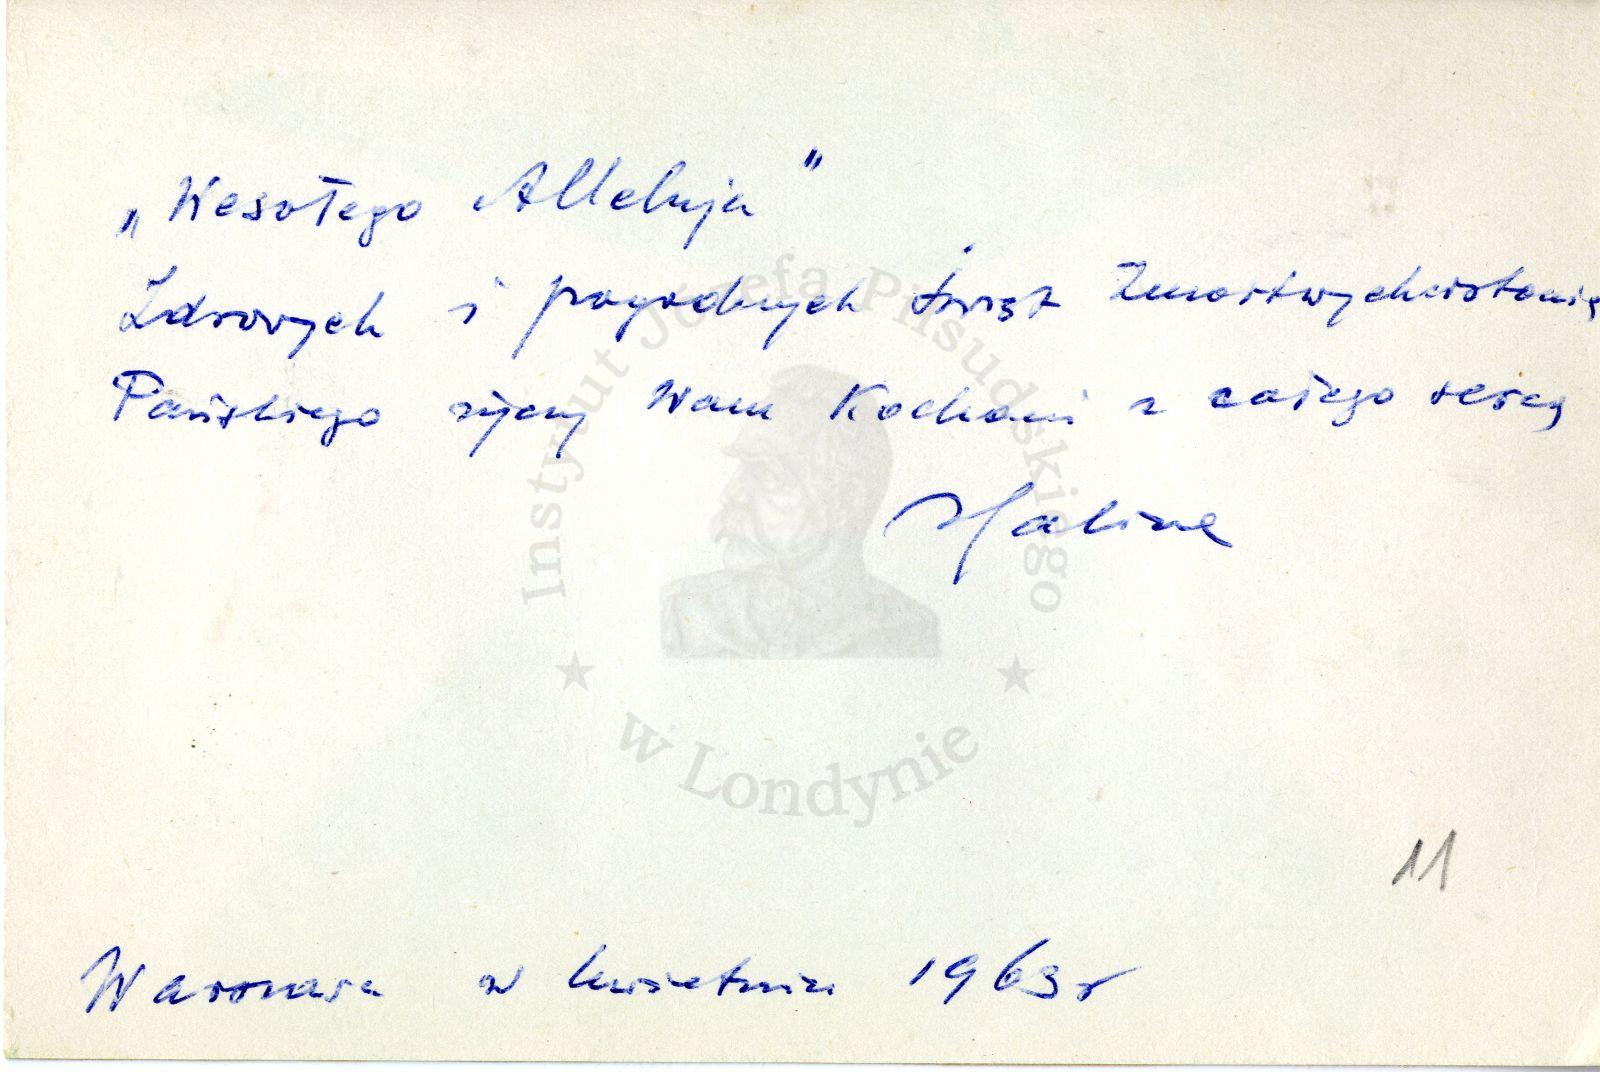 „Wesołego Alleluja”
Zdrowych i pogodnych Świąt Zmartwychwstania
Pańskiego życzy Wam Kochani z całego serca
Halina
11
Warszawa w kwietniu 1963 r
Instytut Józefa Piłsudskiego
w Londynie